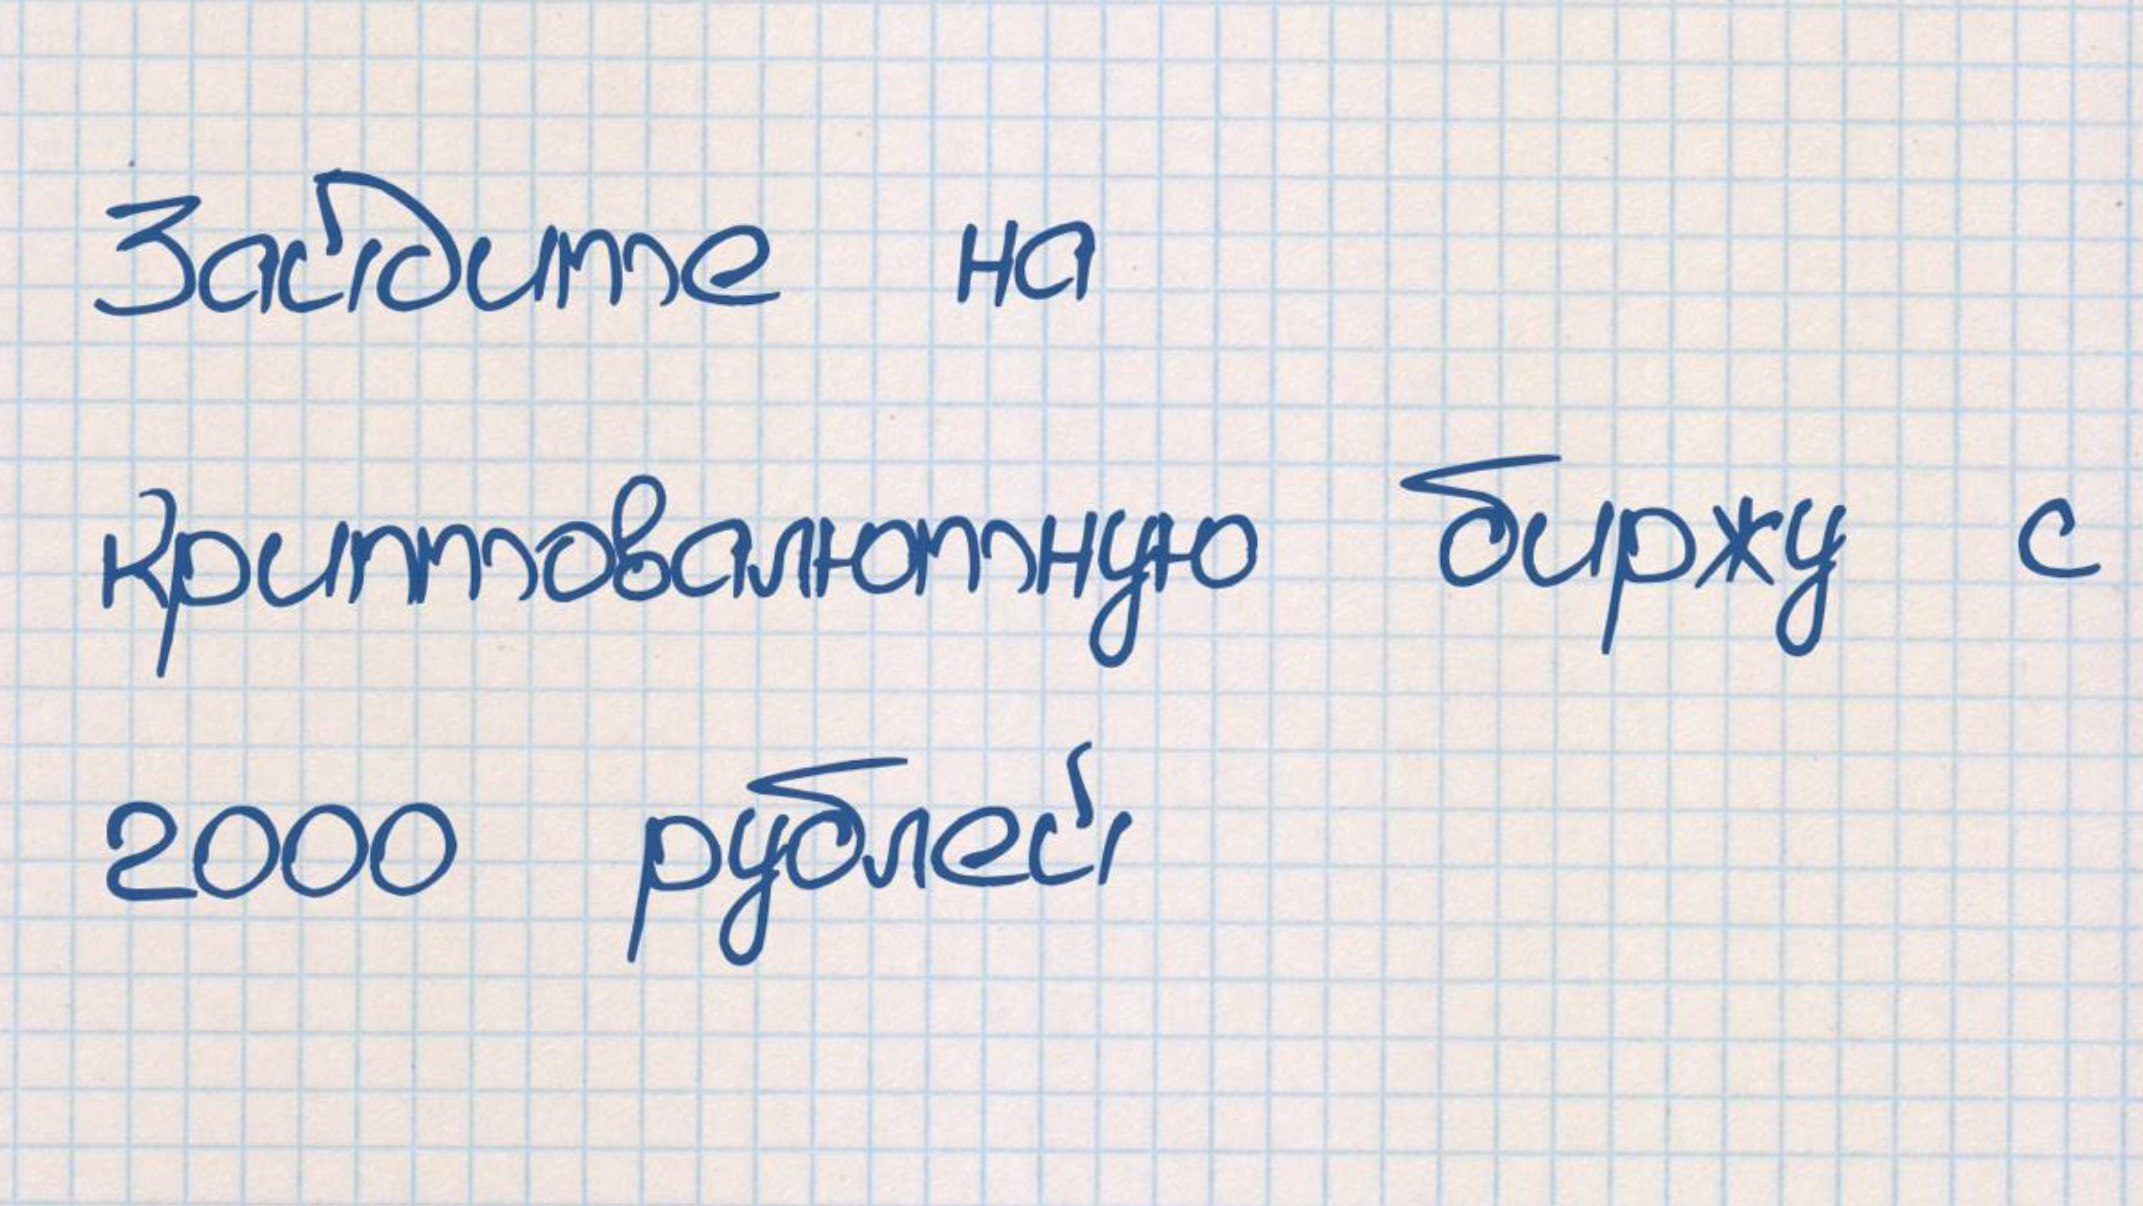 Зайдите на
криптовалютную биржу с
2000 рублей